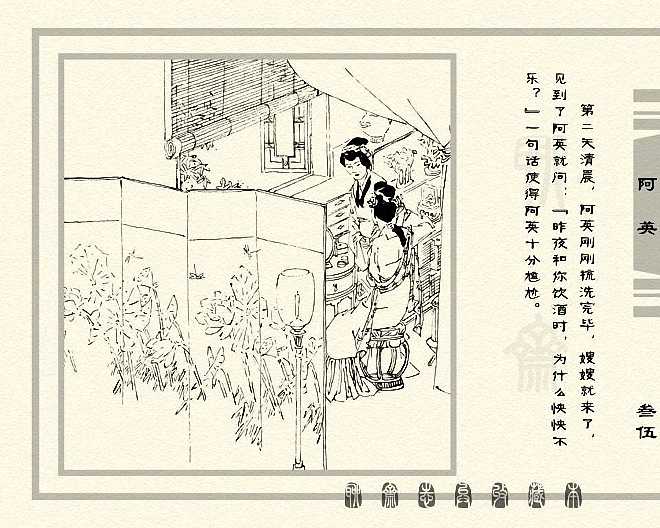 第二天清晨，阿英刚刚梳洗完毕，嫂嫂就来了，
见到了阿英就问：『昨夜和你饮酒时，为什么怏怏不
乐？』一句话使得阿英十分尴尬。
阿英
叁伍